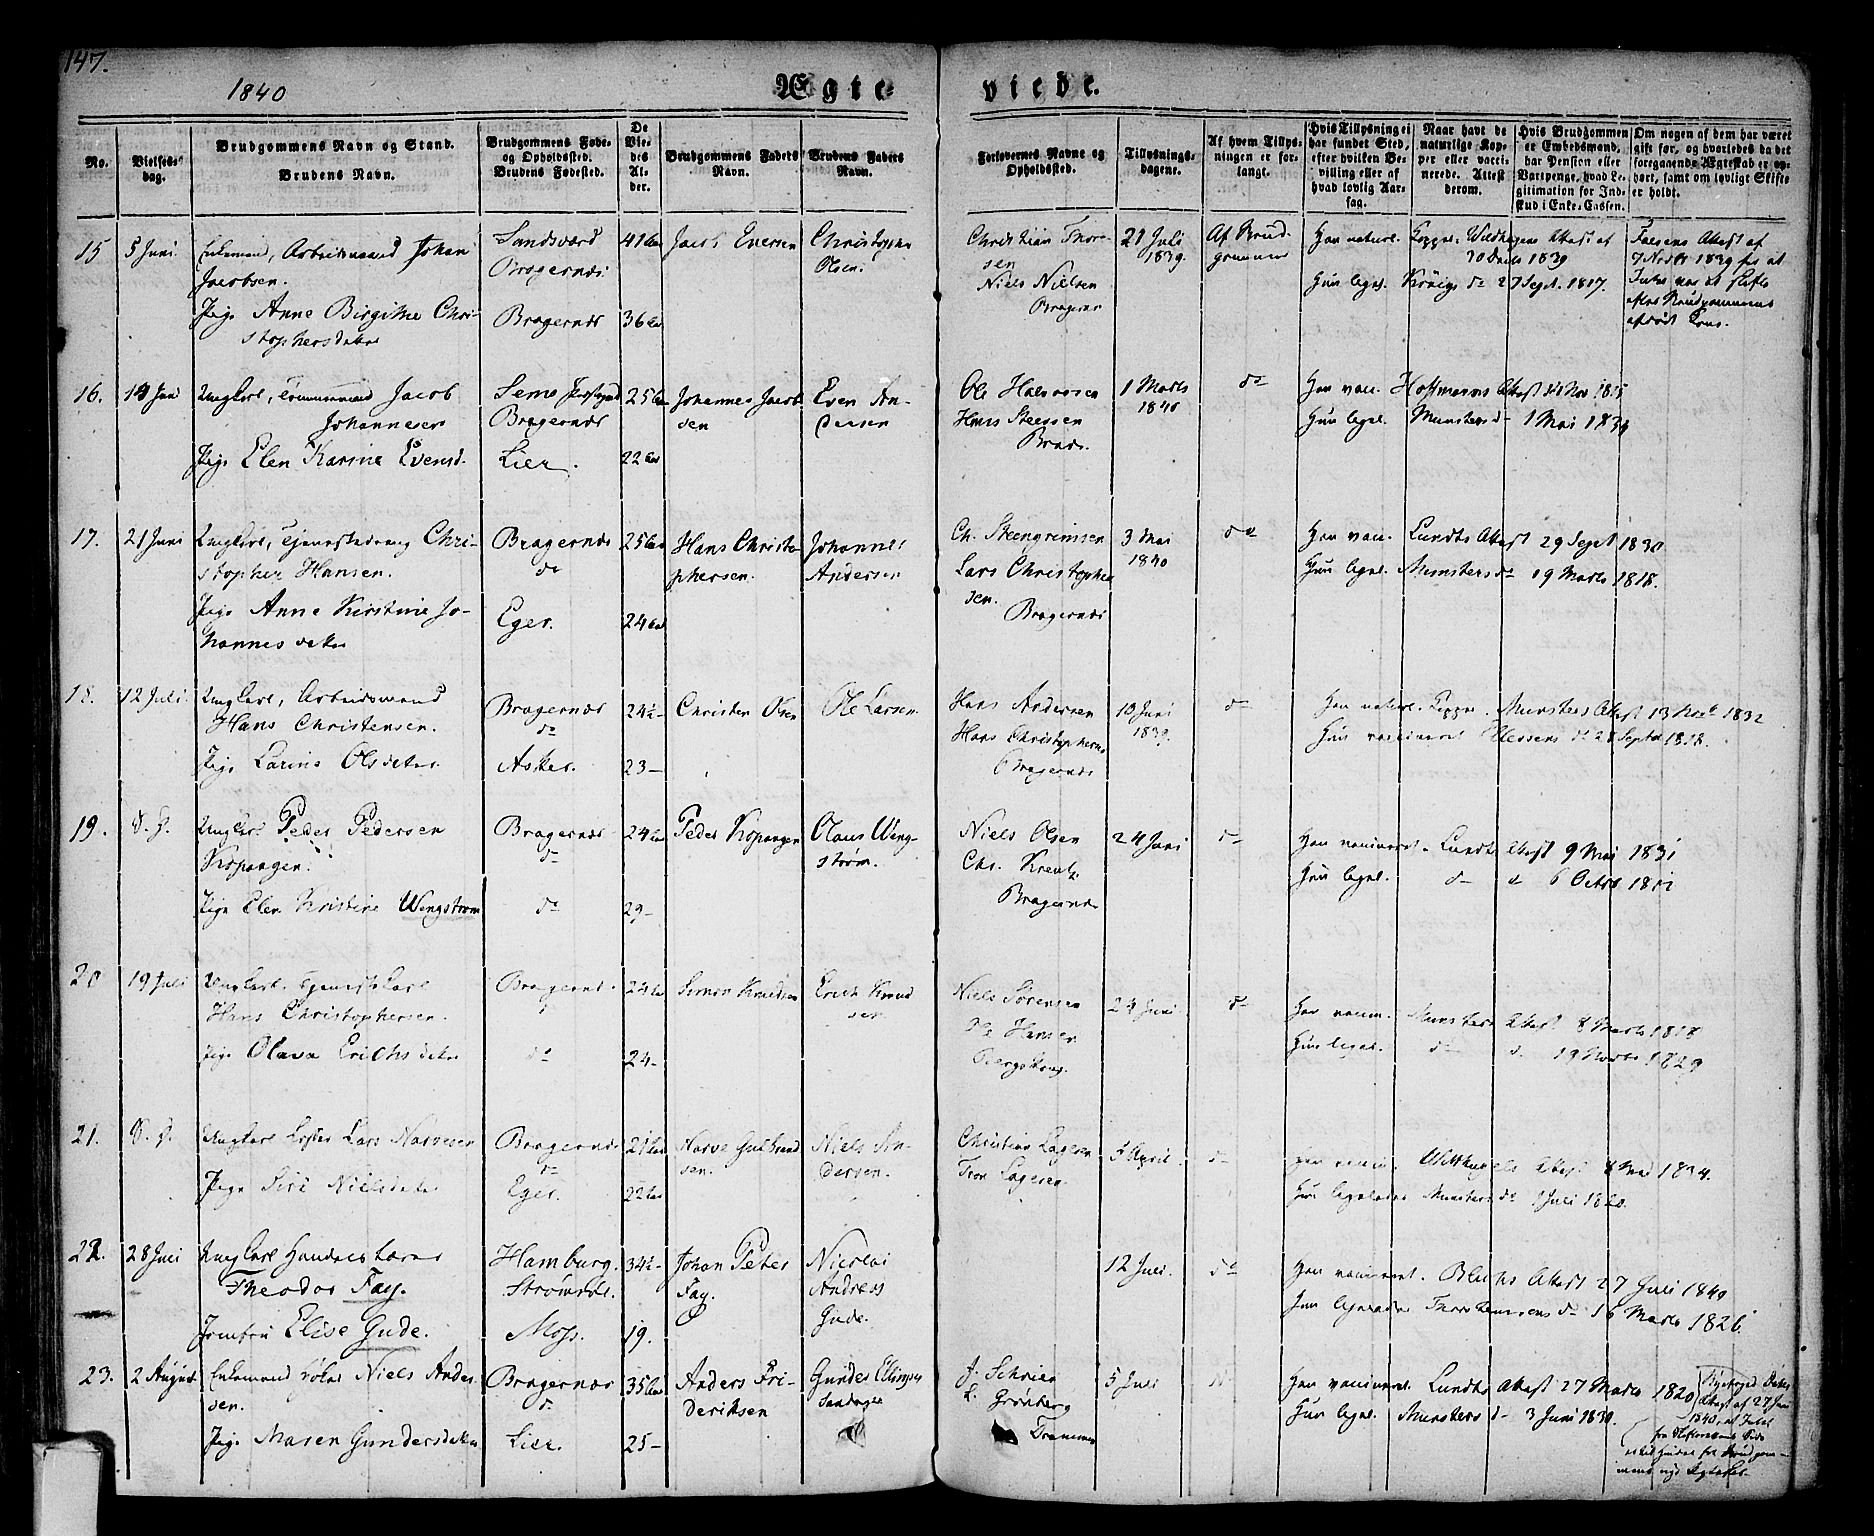 147.
1840
Ægte
viede.
No.
Vielses-
dag.
Brudgommens Navn og Stand.
Brudens Navn.
Brudgommens Føde-
og Opholdsted.
Brudens Fødested.
De
Vie-
des
Al-
der.
Brudgommens Faders
Navn.
Brudens Faders
Navn.
Forlovernes Navne og
Opholdsted.
Tillysnings-
dagene.
Af hvem Tillys-
ningen er for-
langt.
Hvis Tillysning ei
har fundet Sted,
efter hvilken Be-
villing eller af
hvad lovlig Aar-
sag.
Naar havt de
naturlige Kop-
per eller vacci-
nerede. Attest
derom.
Hvis Brudgommen
er Embedsmand,
har Pension eller
Vartpenge, hvad Le-
gitimation for Ind-
skud i Enke-Cassen.
Om nogen af dem har været
gift før, og hvorledes da det
foregaaende Ægteskab er op-
hørt, samt om lovligt Skifte
er holdt.
15
5 Juni
Enkemand, Arbeidsmand Johan
Jacobsen.
Pige Anne Birgithe Chri-
stophersdatter
Sandsværd
Bragernæs
Bragernæs
41 Aar
36 Aar
Jacob Eversen
Christopher
Olsen.
Christian Thore-
sen
Niels Nielsen
Bragernæs
21 Juli
1839
Af Brud-
gommen
Han naturl. Kopper. Attest af
1839
Hun ligel. do 27 Sept. 1817.
Attest af
7 1839 for at
Intet var at skifte
efter Brudgommens
afdøde Kone.
16.
14 Juni
Ungkarl, Tømmermand Jacob
Johannesen
Pige Elen Karine Evensd.
Bragernæs
Lier.
25 Aar
22 Aar
Johannes Jacob-
sen
Even An-
dersen
Ole Halvorsen
Hans Steensen
Brag.
1 Marts
1840
do
Han vacc. Hoffmanns Attest
Hun ligel. Munsters do 1 Mai
17.
21 Juni
Ungkarl, Chri-
stopher Hansen.
Pige Anne Kirstine Jo-
hannesdatter
Bragernæs
do
Eger.
25 Aar
24 Aar
Hans Christo-
phersen.
Johannes
Andersen
Ch. Steengrimsen
Lars Christopher-
sen.
Bragernæs
3 Mai
1840
do
Han vacc. Lundts Attest 29 Sept 1830
Hun ligel. Munsters do 19 Marts 1818.
18.
12 Juli
Ungkarl, Arbeidsmand
Hans Christensen.
Pige Larine Olsdatter
Bragernæs
do
Asker.
24½-
23-
Christen Olsen
Ole Larsen
Hans Andersen
Hans Christophersen
Bragernæs
1839
do
Han naturl. Kopper. Munsters Attest 13 1832
Hun vaccineret do 28 Septbr 1818.
19.
d. d.
Ungkarl Peder Pedersen
Kopangen.
Pige Elen Kristine Wengstrøm
Bragernæs
do
do
24 Aar
29-
Peder Kopangen
Olaus Weng-
strøm.
Niels Olsen
Chr. Kreutz
Bragernæs
24 Juni
do
Han vaccineret. Lundts Attest 9 Mai 1831
Hun ligel. do d 6 Octbr
20
19 Juli
Ungkarl. Tjenestekarl
Hans Christophersen.
Pige Olava Erichsdatter
Bragernæs
do
24 Aar
24-
Erich Knud-
sen
Niels Sørensen
Ole Hansen
24 Juni
do
Han vaccin. Munsters Attest 8 Marts 1818
Hun ligel. do d. 19 Marts 1829
21.
d. d.
Ungkarl Lars Narvesen
Pige Siri Nielsdatter
Bragernæs
do
Eger.
21 Aar
22 Aar
Narve Gulbrand-
sen.
Niels An-
dersen.
Christian Lagesen
Tron Lagesen.
5 April.
do
Han vaccin. Attest 8 Mai 1834.
Hun ligeledes Munsters do 1 Juli 1820.
22.
28 Juli
Ungkarl
Theodor Fay.
Jomfru Elise Gude.
Hamburg.
Strømsø.
Moss.
34½-
19.
Johan Peter
Fay.
Nicolai
Andreas
Gude.
12 Juli.
do
Han vaccineret. Attest 27 Juli 1840
Hun ligeledes do 16 Marts 1826.
23.
2 August
Enkemand Niels Ander-
sen.
Pige Maren Gundersdatter
Bragernæs
d.
Lier.
35 Aar
25-
Anders Fri-
deriksen
Gunder Ellingsen
J.
L. Grønberg
Drammen
5 Juli
Han vaccineret. Lundts Attest 27 Marts 1820
Hun ligel. Munsters d- 3 Juni
Attest af 27 Juni
1840, at Intet